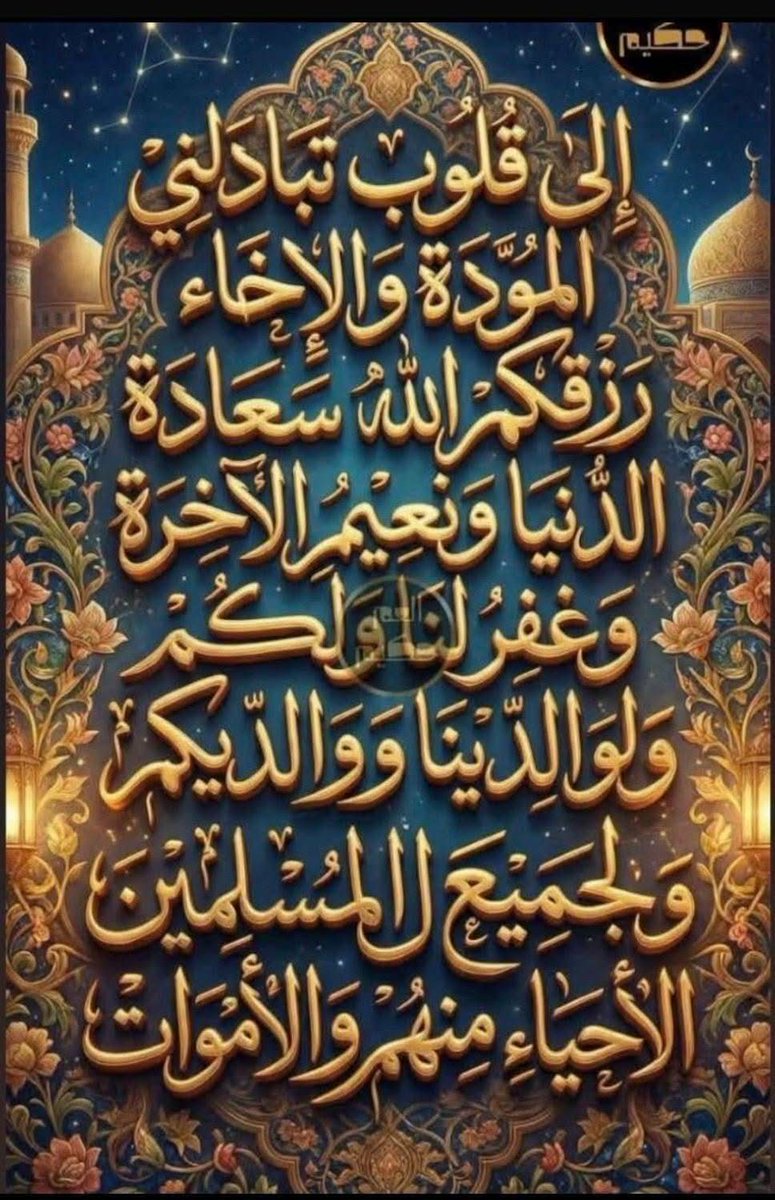 حكيم
إِلَى قُلُوب تَبَادَلَنِي
المُوَدَّة وَالإِخَاء
رَزْقكمْ اللهُ سَعَادَة
الدُّنْيَا وَنَعِيْمُ الآخِرَة
وَغفِرُ لَنَا وَلكُمْ
وَلوَالِدِّيْنَا وَوَالدّيكمْ
وَلجَمِيْعَ ال المُسْلِمِيْنَ
الأَحيَاءِ مِنهُمْ وَالأَمْوَات
العم
حكيم